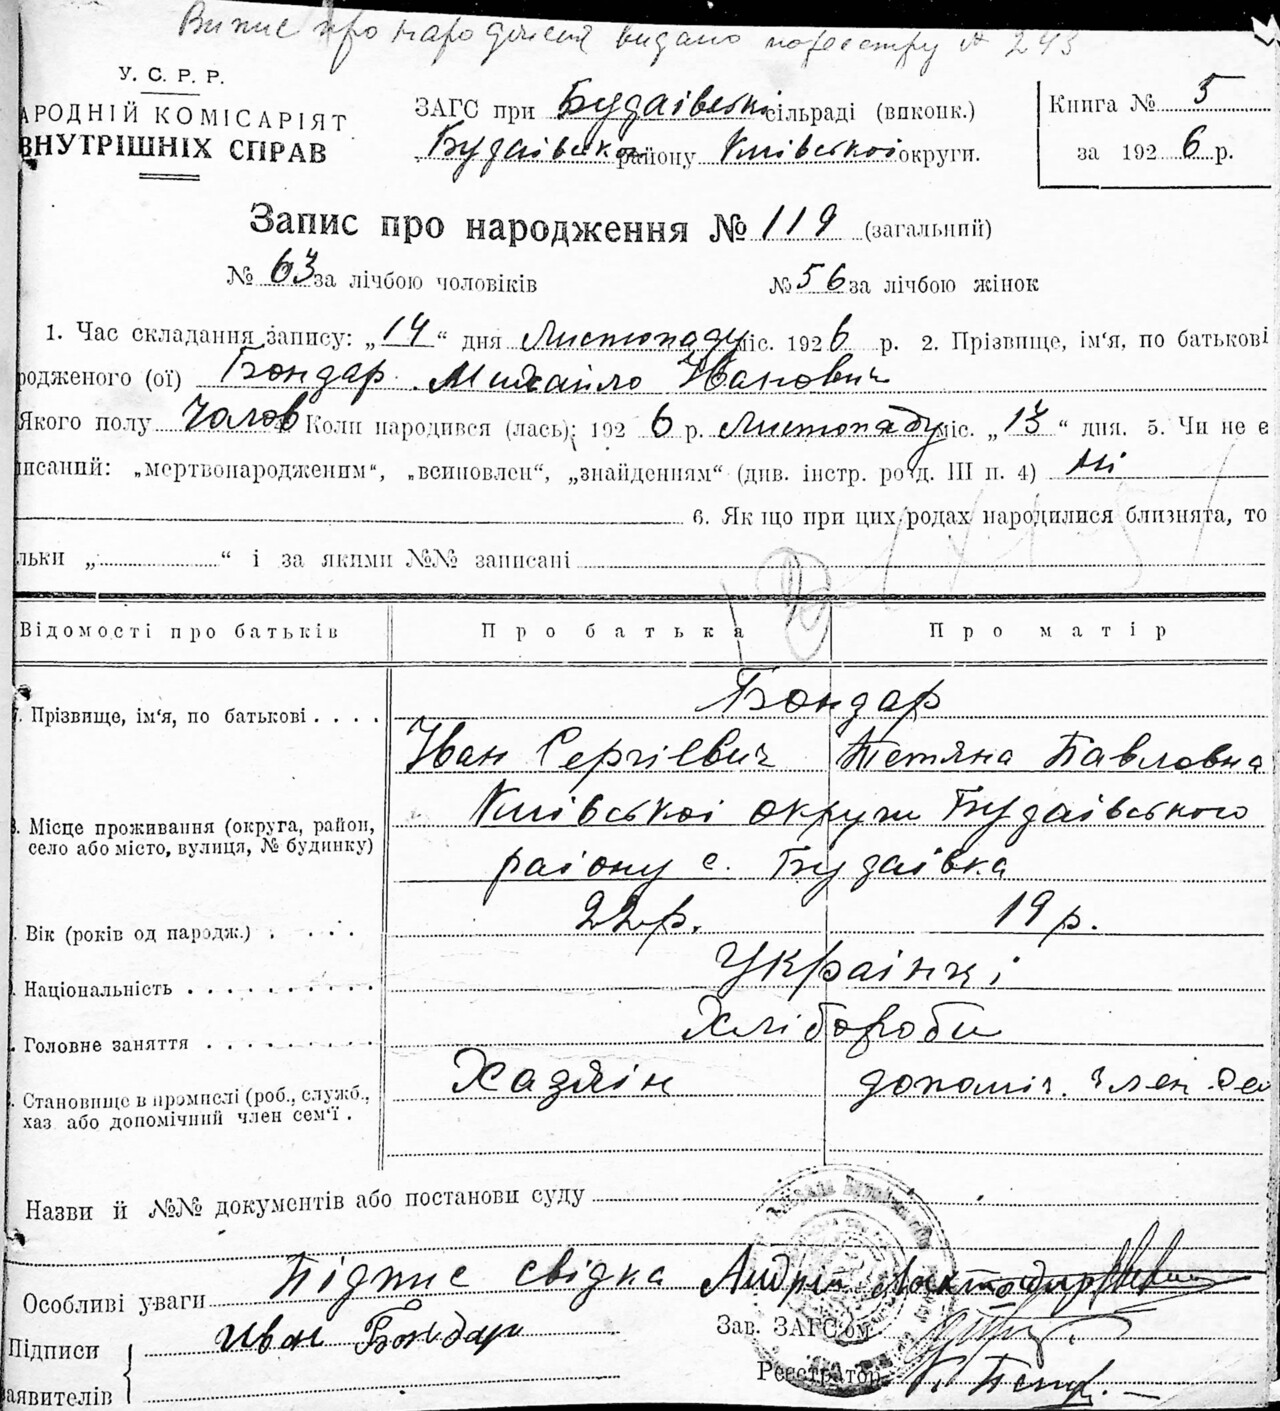 Випис про народження видано пореєстру № 243
У. С. Р. Р.
АРОДНІЙ КОМІСАРІЯТ
ВНУТРІШНІХ СПРАВ
ЗАГС при Будаівській сільраді (виконк.)
Будаівськ району Київської округи.
Книга № 5
за 1926 р.
Запис про народження № 119 (загальний)
№ 63 за лічбою чоловіків № 56 за лічбою жінок
1. Час складання запису: „14“ дня Листопаду міс. 1926 р. 2. Прізвище, ім'я, по батькові
родженого (ої) Бондар Михайло Иванович
Якого полу Чолов 4. Коли народився (лась): 1926 р. Листопаду міс. „13“ дня. 5. Чи не є
писаний: „мертвонародженим“, „всиновлен“, „знайденням“ (див. інстр. розд. III п. 4) Ні
6. Як що при цих родах народилися близнята, то
льки „ “ і за якими №№ записані
Відомості про батьків Про батька Про матір
7. Прізвище, ім'я, по батькові . . . . Бондар
Иван Сергієвич Тетяна Павловна
8. Місце проживання (округа, район, село або місто, вулиця, № будинку) Київської округи Будаівського
району с. Будаівка
. Вік (років од народж.) . . . . 22 р. 19 р.
. Національність . . . . . . . . . . Українці
. Головне заняття . . . . . . . . . Хлібороби
. Становище в промислі (роб., служб., хаз або допомічний член сем'ї . Хазяїн допоміч. член се
Назви й №№ документів або постанови суду
Особливі уваги Підпис свідка Андрій
Підписи заявителів Иван Бондар
Зав. ЗАГС'ом
Реєстратор